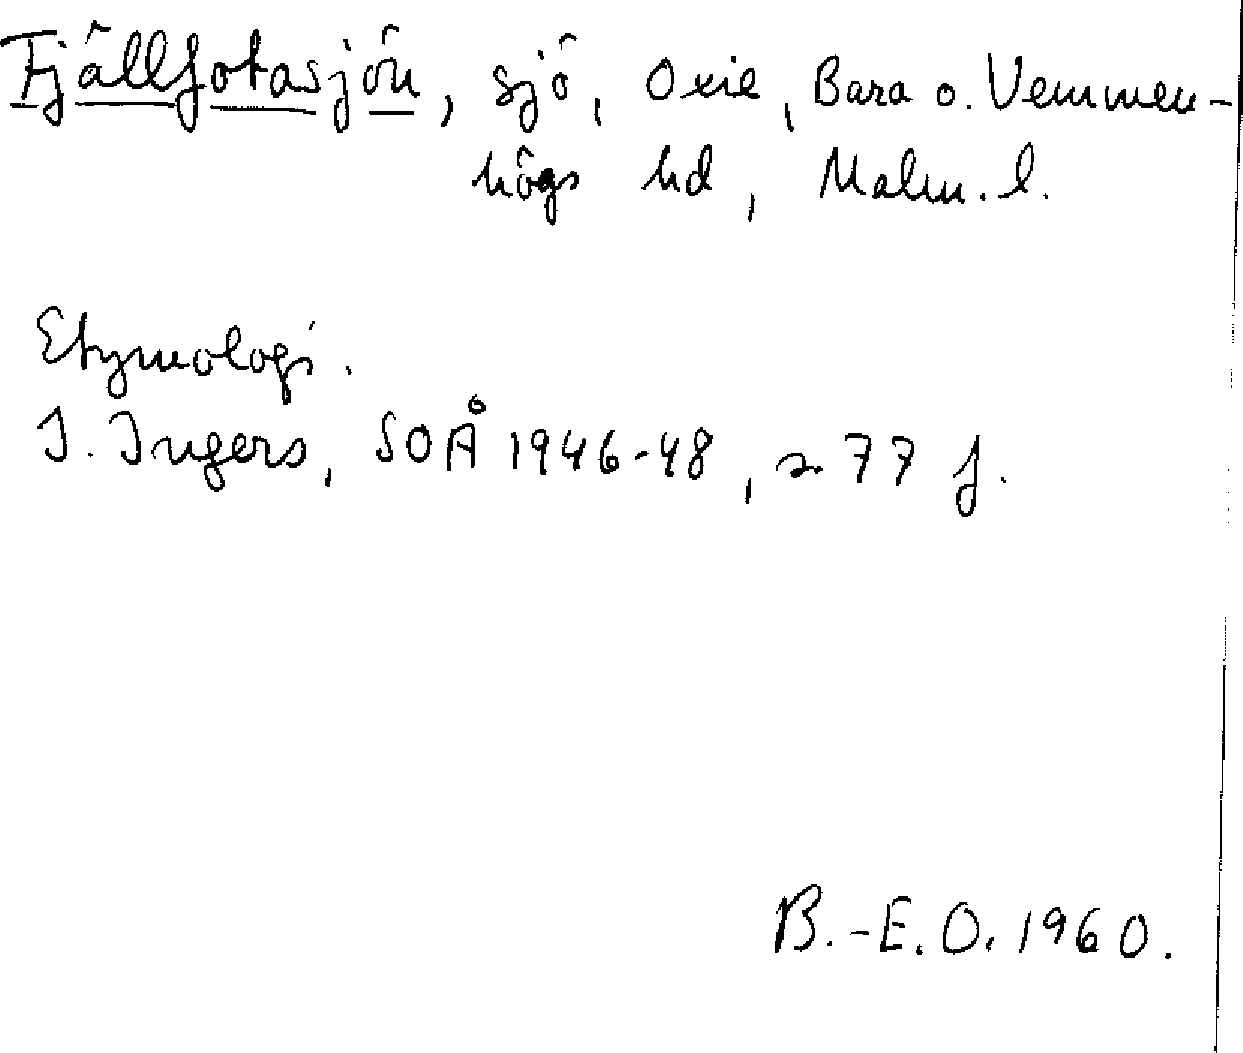 Fjällfotasjön, sjö, Oxie, Bara o. Vemmen-
högs hd, Malm. l.
Etymologi.
I. Ingers, SOÅ 1946-48, s. 77 f.
B.-E.O. 1960.